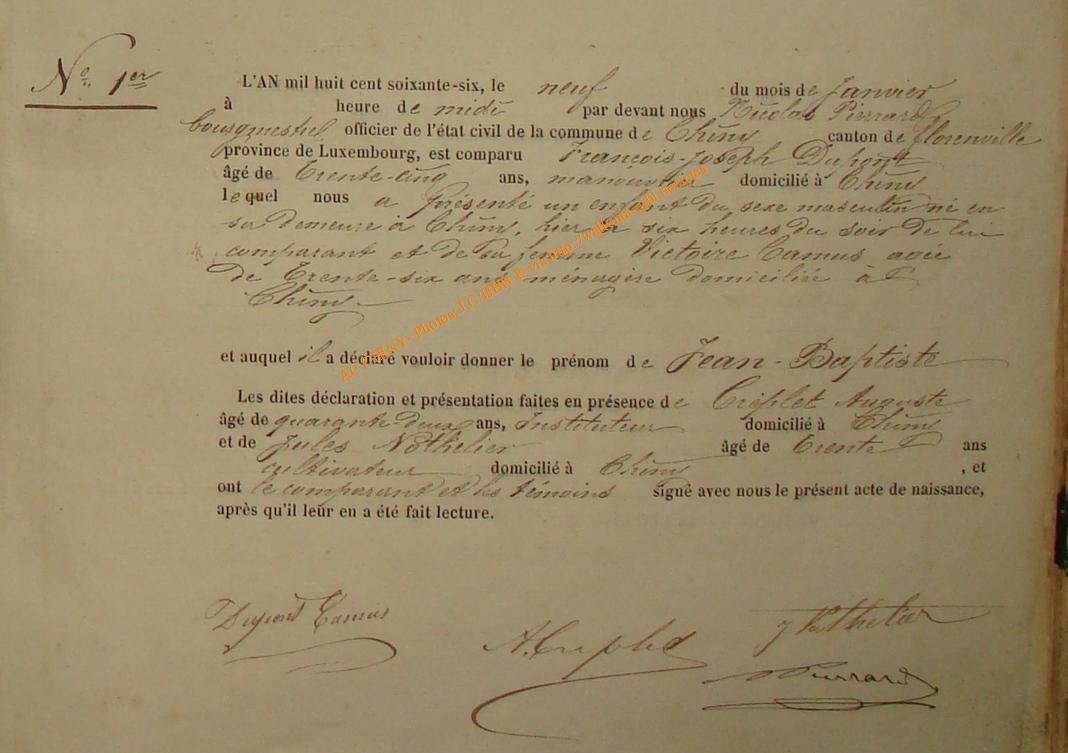 N° 1er
L'AN mil huit cent soixante-six, le neuf du mois de Janvier
à heure de midi par devant nous Nicolas Pierrard
bourgmestre officier de l'état civil de la commune de Chiny canton de Florenville
province de Luxembourg, est comparu François-Joseph Dupont
âgé de Trente-cinq ans, manouvrier domicilié à Chiny
lequel nous a présenté un enfant du sexe masculin né en
sa demeure à Chiny, hier à six heures du soir de lui
comparant et de sa femme Victoire Camus agée
de Trente-six ans ménagère domiciliée à
Chiny
et auquel il a déclaré vouloir donner le prénom de Jean-Baptiste
Les dites déclaration et présentation faites en présence de Creplet Auguste
âgé de quarante deux ans, Instituteur domicilié à Chiny
et de Jules Nothelier âgé de Trente ans
cultivateur domicilié à Chiny , et
ont le comparant et les témoins signé avec nous le présent acte de naissance,
après qu'il leur en a été fait lecture.
Dupont Camus
A. Creplet
J Nothelier
Pierrard